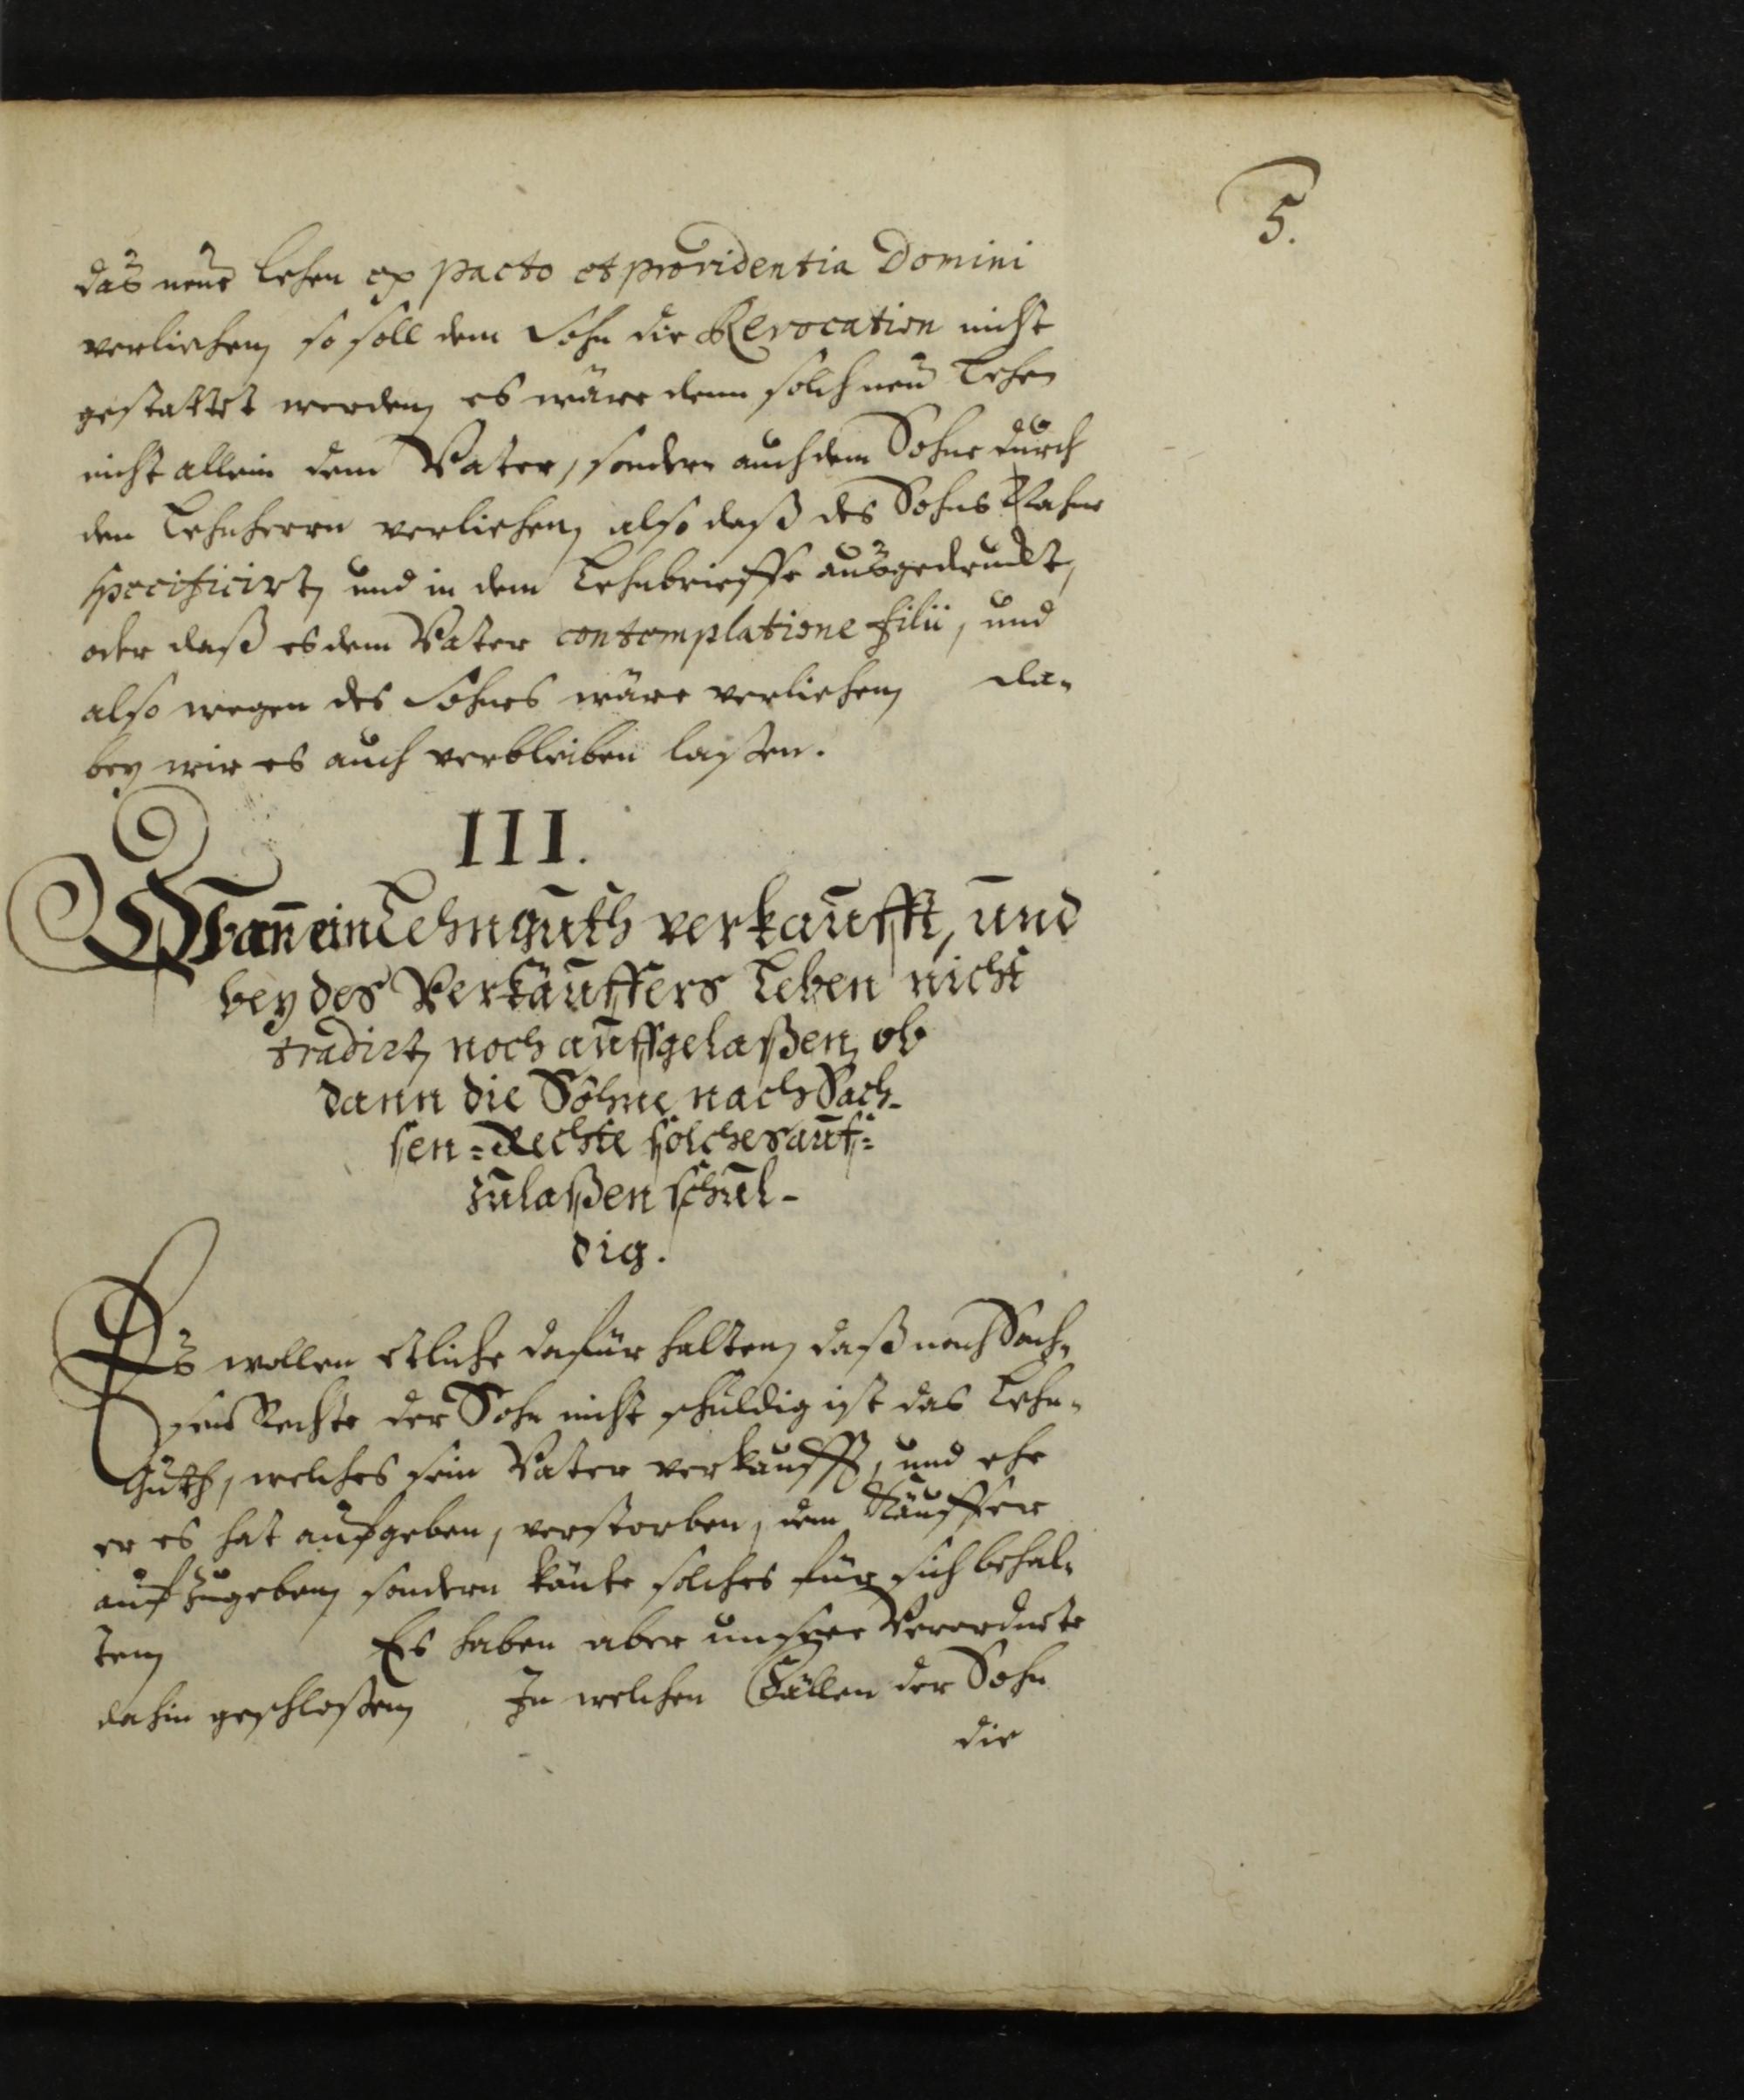 5.
das neue Lehen ex pacto et providentia Domini
verliehen, so soll dem Sohn die Revocation nicht
gestattet werden, es wäre denn solch neu Lehen
nicht allein dem Vater, sondern auch dem Sohne durch
den Lehnherrn verliehen, also daß des Sohns Nahme
specificirt, und in dem Lehnbrieffe außgedruckt,
oder daß es dem Vater contemplatione filii, und
also wegen des Sohnes wäre verliehen, da-
bey wir es auch verbleiben laßen.
III.
Wan̄ ein Lehnguth verkaufft, und
bey des Verkäuffers Leben nicht
tradirt, noch auffgelaßen, ob
dann die Söhne nach Sach-
sen-Rechte solches auf-
zulaßen schul-
dig.
Es wollen etliche dafür halten, daß nach Sach-
sens Rechte der Sohn nicht schuldig ist das Lehn-
Guth, welches sein Vater verkaufft, und ehe
er es hat aufgeben, verstorben, dem Käuffer
auf zugeben, sondern könte solches für sich behal-
ten, Es haben aber unsere Verordnete
dahin geschloßen, In welchen Fällen der Sohn
die